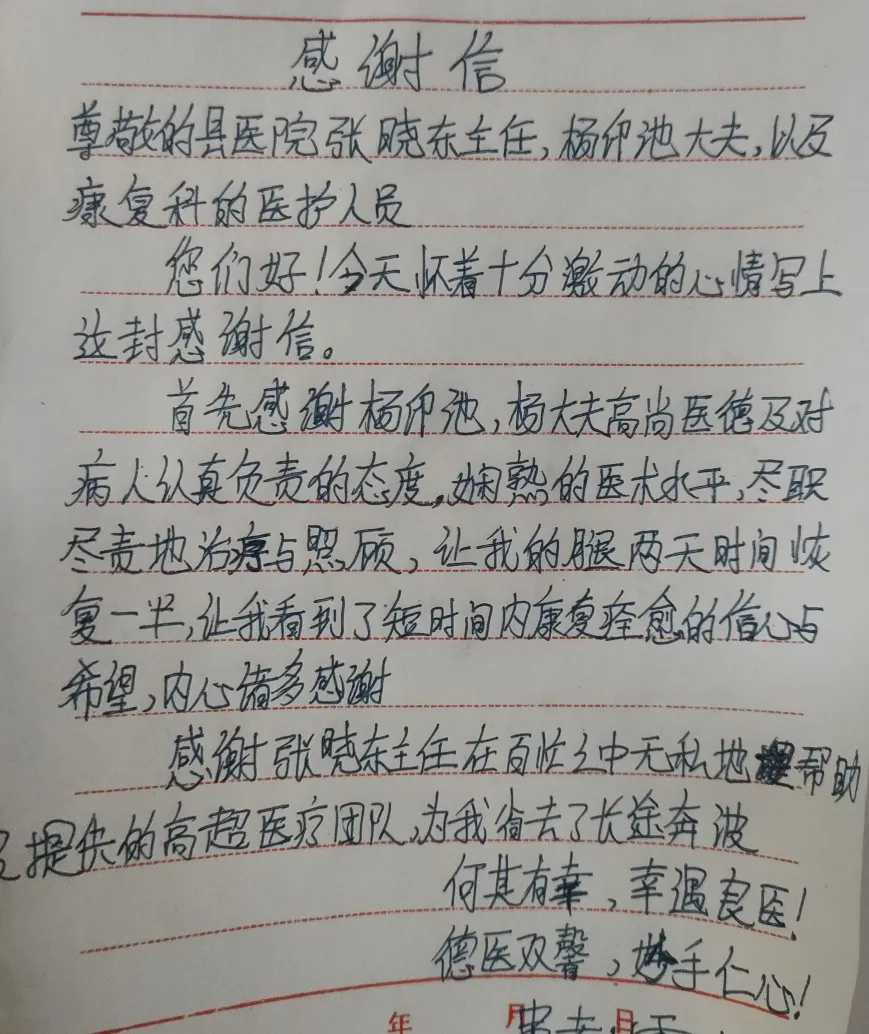 感谢信
尊敬的县医院张晓东主任,杨印池大夫,以及
康复科的医护人员
您们好!今天怀着十分激动的心情写上
这封感谢信。
首先感谢杨印池,杨大夫高尚医德及对
病人认真负责的态度,娴熟的医术水平,尽职
尽责地治疗与照顾,让我的腿两天时间恢
复一半,让我看到了短时间内康复痊愈的信心与
希望,内心诸多感谢
感谢张晓东主任在百忙之中无私地帮助
及提供的高超医疗团队,为我省去了长途奔波
何其有幸,幸遇良医!
德医双馨,妙手仁心!
年 月 日
患者